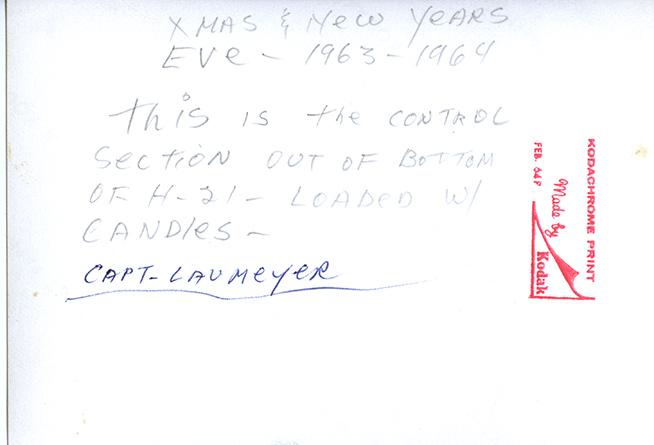 XMAS & New YeARS
EVe - 1963 - 1964
This is the CONTROL
Section OUT OF BOTTOM
OF H-21 - LOADED W/
CANDles -
CAPT-LAUMeyeR
KODACHROME PRINT
Made by
Kodak
FEB. 64P